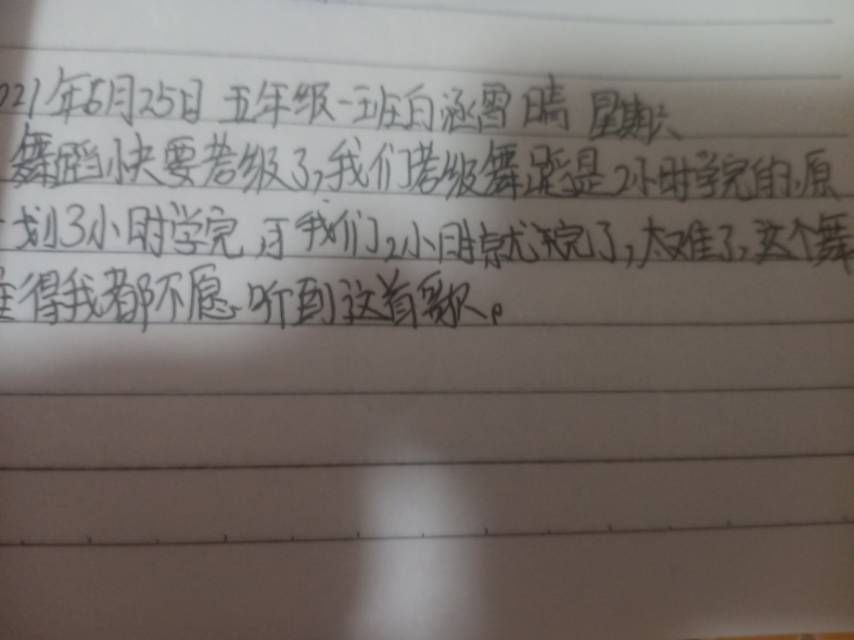 021年6月25日 五年级一班白涵雪晴 星期六
舞蹈快要考级了,我们考级舞蹈是2小时学完的,原
划3小时学完,于我们2小时就学完了,太难了,这个舞
得我都不愿听到这首歌。